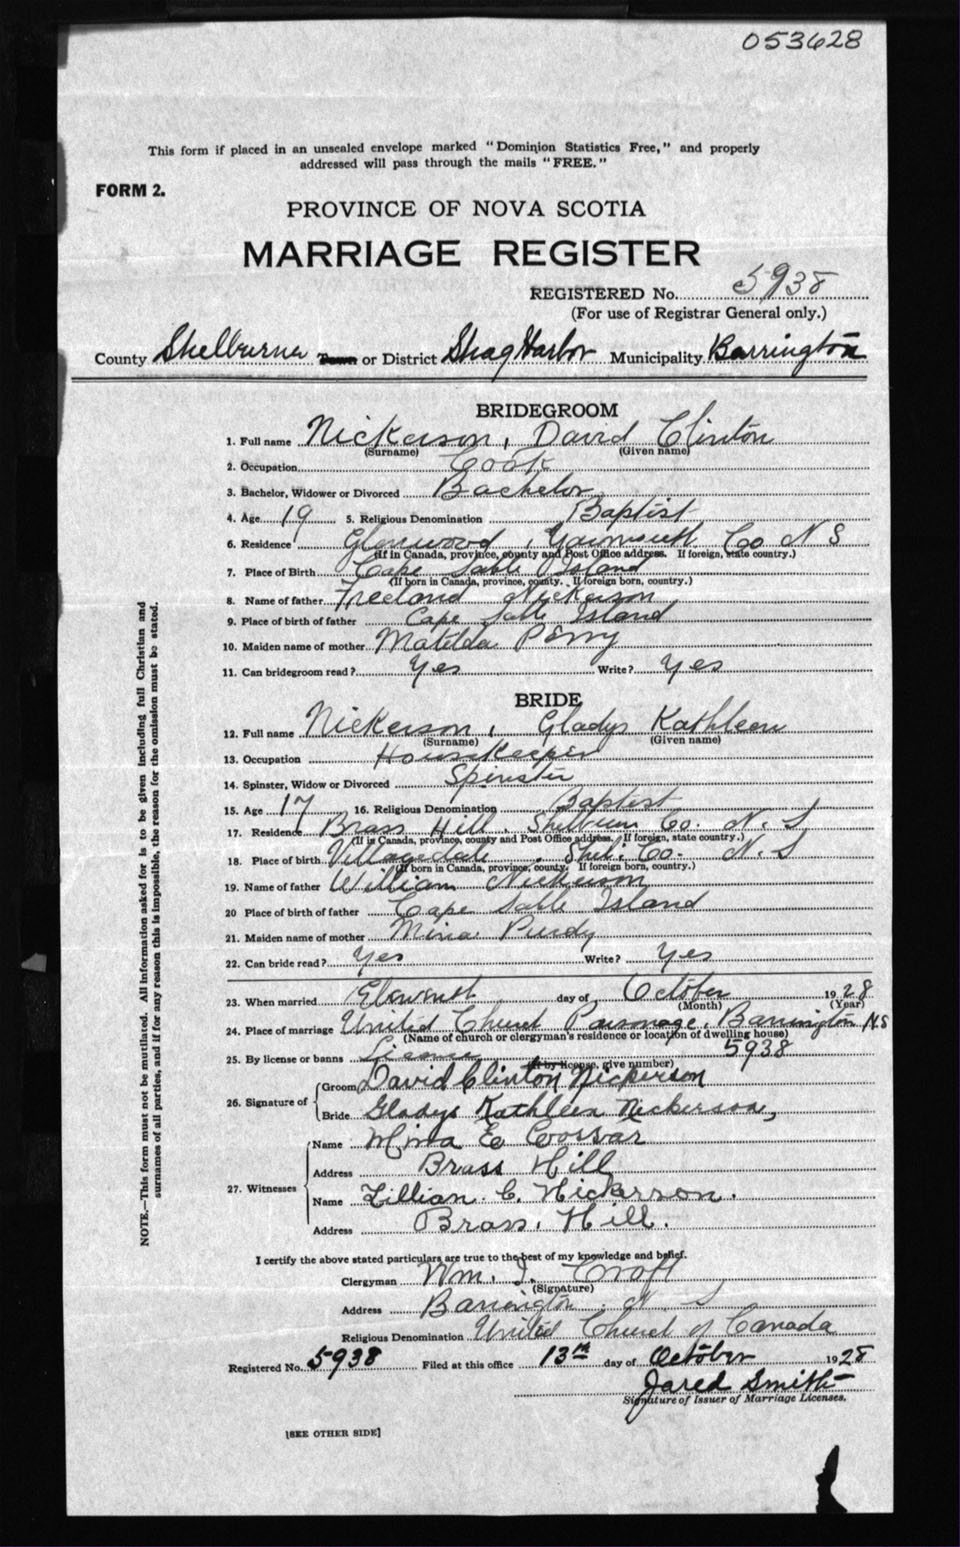 053628
This form if placed in an unsealed envelope marked "Dominion Statistics Free," and properly
addressed will pass through the mails "FREE."
FORM 2.
PROVINCE OF NOVA SCOTIA
MARRIAGE REGISTER
REGISTERED No. 5938
(For use of Registrar General only.)
County Shelburne Town or District Shag Harbor Municipality Barrington
BRIDEGROOM
1. Full name Nickerson, David Clinton
(Surname) (Given name)
2. Occupation Cook
3. Bachelor, Widower or Divorced Bachelor
4. Age 19 5. Religious Denomination Baptist
6. Residence Glenwood, Yarmouth Co N S
(If in Canada, province, county and Post Office address. If foreign, state country.)
7. Place of Birth Cape Sable Island
(If born in Canada, province, county. If foreign born, country.)
8. Name of father Freeland Nickerson
9. Place of birth of father Cape Sable Island
10. Maiden name of mother Matilda Perry
11. Can bridegroom read? Yes Write? Yes
BRIDE
12. Full name Nickerson, Gladys Kathleen
(Surname) (Given name)
13. Occupation Housekeeper
14. Spinster, Widow or Divorced Spinster
15. Age 17 16. Religious Denomination Baptist
17. Residence Brass Hill, Shelburne Co. N. S
(If in Canada, province, county and Post Office address. If foreign, state country.)
18. Place of birth Villagedale, Shel. Co. N. S
(If born in Canada, province, county. If foreign born, country.)
19. Name of father William Nickerson
20 Place of birth of father Cape Sable Island
21. Maiden name of mother Mina Purdy
22. Can bride read? Yes Write? Yes
23. When married day of October 1928
(Month) (Year)
24. Place of marriage United Church Parsonage, Barrington N.S
(Name of church or clergyman's residence or location of dwelling house)
25. By license or banns License 5938
(If by license, give number)
26. Signature of Groom David Clinton Nickerson
Bride Gladys Kathleen Nickerson,
27. Witnesses Name Mina E
Address Brass Hill
Name Lillian C. Nickerson.
Address Brass. Hill.
I certify the above stated particulars are true to the best of my knowledge and belief.
Clergyman Wm. J. Croft
(Signature)
Address Barrington N. S
Religious Denomination United Church of Canada
Registered No. 5938 Filed at this office 13th day of October 1928
Jared Smith
Signature of Issuer of Marriage Licenses.
[SEE OTHER SIDE]
NOTE.—This form must not be mutilated. All information asked for is to be given including full Christian and
surnames of all parties, and if for any reason this is impossible, the reason for the omission must be stated.